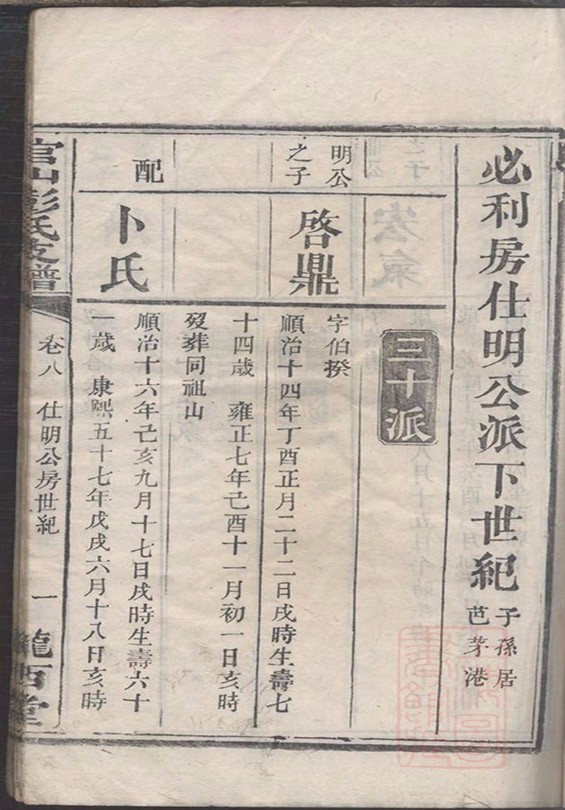 必利房仕明公派下世紀
子孫居
芭茅港
三十派
明公
之子
啓鼎
字伯揆
順治十四年丁酉正月二十二日戌時生壽七
十四歲 雍正七年己酉十一月初一日亥時
歿葬同祖山
配
卜氏
順治十六年己亥九月十七日戌時生壽六十
一歲 康熙五十七年戊戌六月十八日亥時
官山彭氏支譜
卷八 仕明公房世紀
一
隴西堂